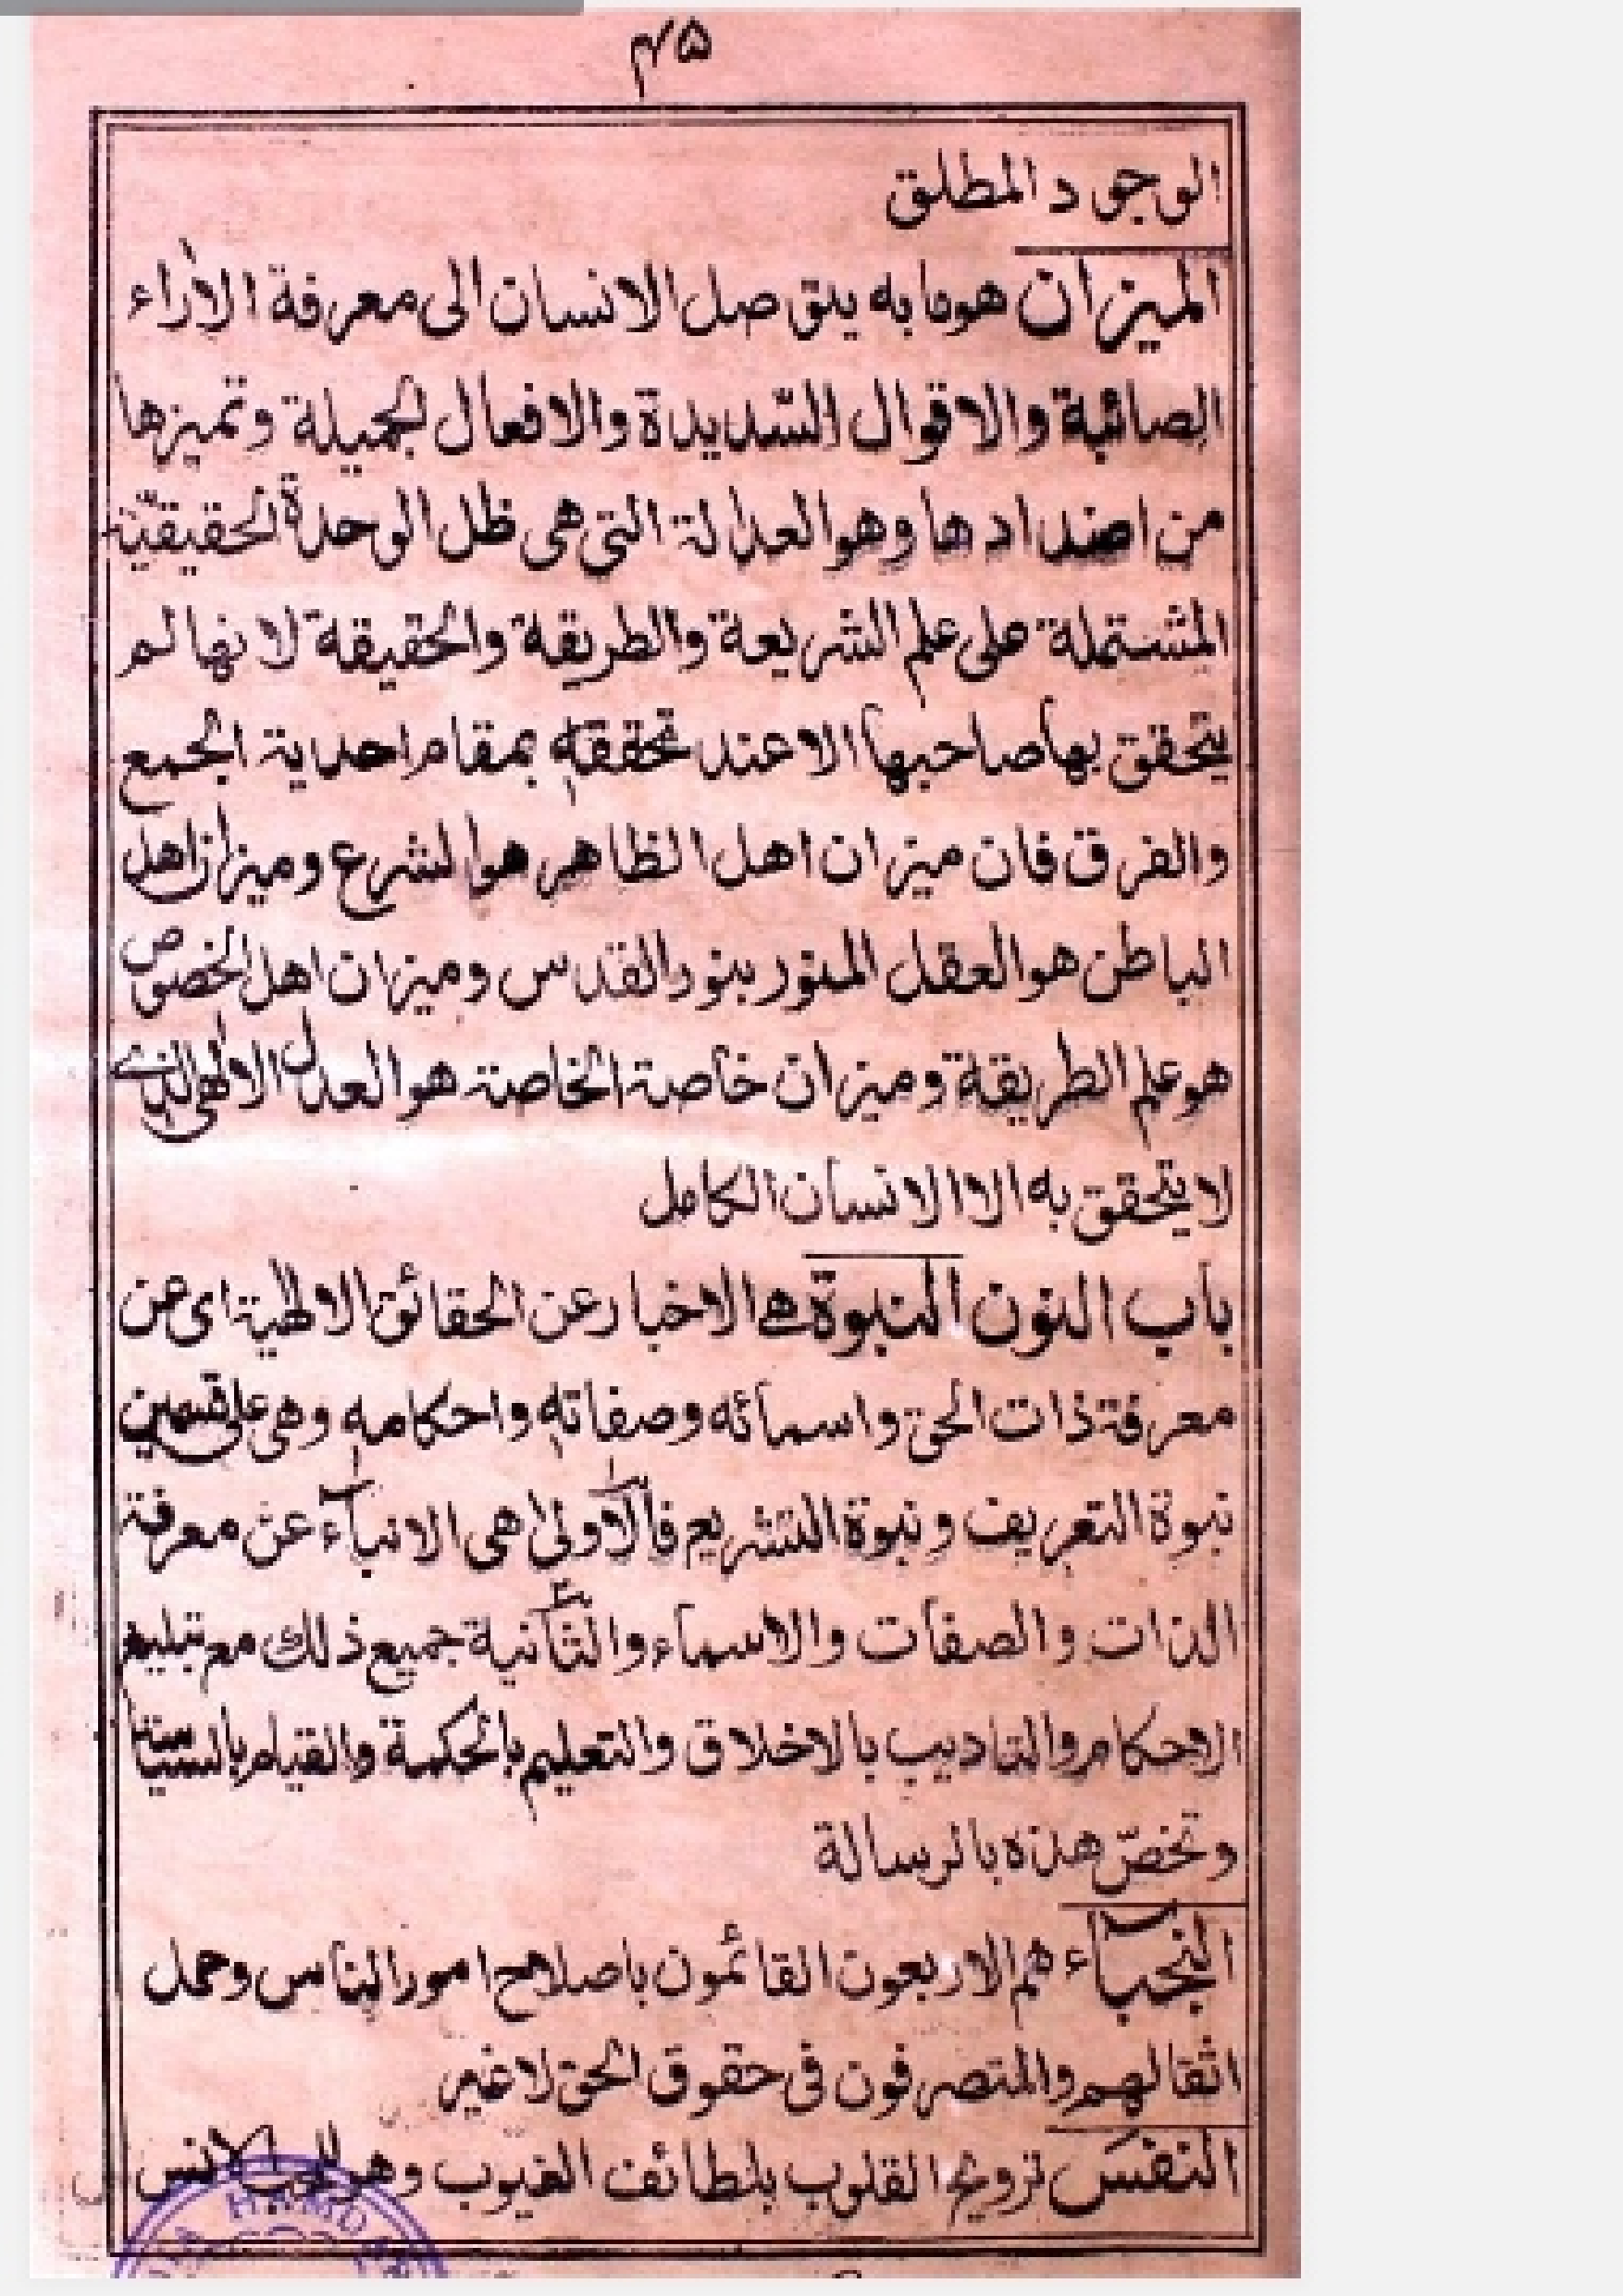 ۴۵
الوجود المطلق
الميزان هو ما به يتوصل الانسان الى معرفة الاٰراء
الصائبة والاقوال السّديدة والافعال الجميلة وتميزها
من اضدادها وهو العدالة التي هى ظل الوحدة الحقيقيّة
المشتملة على علم الشريعة والطريقة والحقيقة لانها لم
يتحقق بها صاحبها الا عند تحققهٖ بمقام احدية الجمع
والفرق فان ميزان اهل الظاهر هو الشرع وميزان اهل
الباطن هو العقل المنور بنور القدس وميزان اهل الخصوص
هو علم الطريقة وميزان خاصة الخاصة هو العدل الالٰهى الذے
لا يتحقق به الا الانسان الكامل
باب النون النبوة هے الاخبار عن الحقائق الالٰهية اى عن
معرفة ذات الحق واسمائه وصفاتهٖ واحكامهٖ وهى على قسمين
نبوة التعريف ونبوة التشريع فالاولىٰ هى الانباٰء عن معرفة
الذات والصفات والاسماء والثانية جميع ذلك مع تبليغ
الاحكام والتاديب بالاخلاق والتعليم بالحكمة والقيام بالسياسة
وتخصّ هذه بالرسالة
النجباٰء هم الاربعون القائمون باصلاح امور الناس وحمل
اثقالهم والمتصرفون فى حقوق الحق لا غير
النفَس ترويح القلوب بلطائف الغيوب وهو للمحب الانس
HAMD